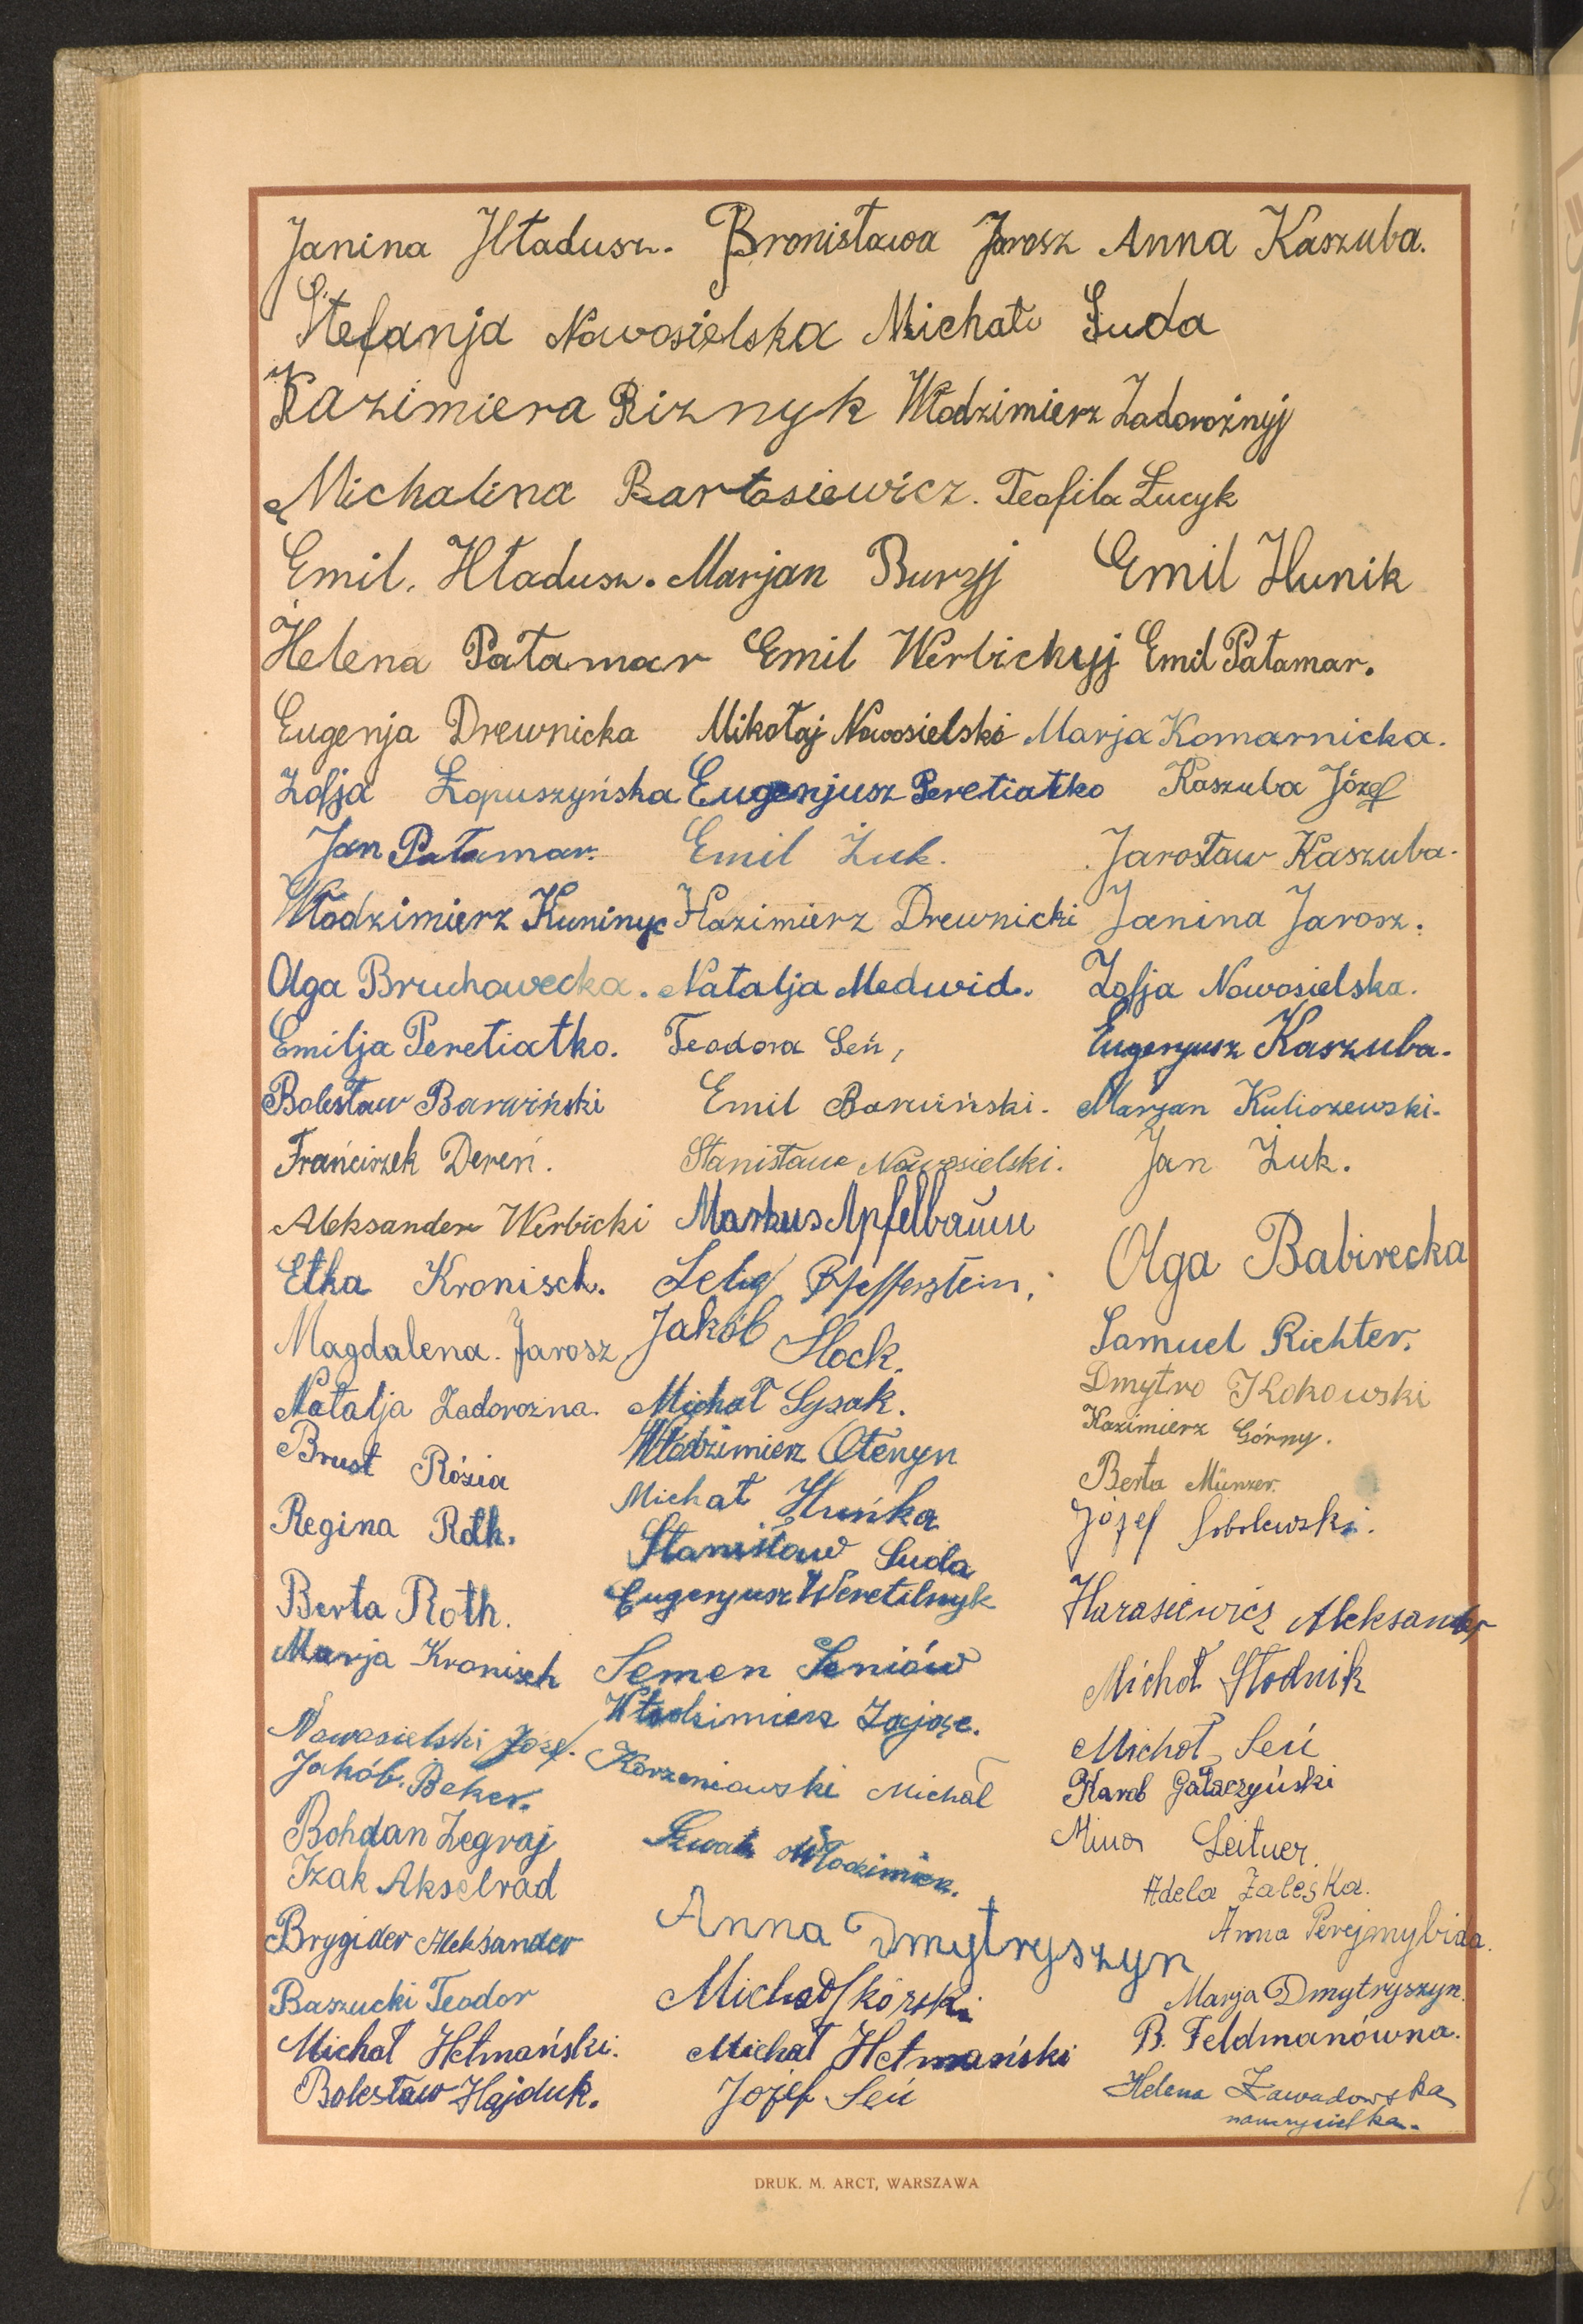 Janina Hładusz. Bronisława Jarosz Anna Kaszuba.
Stefanja Nowosielska Michał Suda
Kazimiera Riznyk Włodzimierz Zadorożnyj
Michalina Bartosiewicz. Teofila Łucyk
Emil. Hładusz. Marjan Buryj Emil Hunik
Helena Pałamar Emil Werbickyj Emil Pałamar.
Eugenja Drewnicka Mikołaj Nowosielski Marja Komarnicka.
Zofja Łopuszyńska Eugenjusz Peretiatko Kaszuba Józef
Jan Pałamar. Emil Żuk. Jarosław Kaszuba.
Włodzimierz Kuninyc Kazimierz Drewnicki Janina Jarosz.
Olga Bruchowecka. Natalja Medwid. Zofja Nowosielska.
Emilja Peretiatko. Teodora Seń, Eugenjusz Kaszuba.
Bolesław Barwiński Emil Barwiński. Marjan Kuliczewski.
Frańciszek Dereń. Stanisław Nowosielski. Jan Żuk.
Aleksander Werbicki Markus Apfelbaum
Olga Babirecka
Etka Kronisch. Selig Pfefferstein,
Magdalena. Jarosz Jakób Stock. Samuel Richter.
Natalja Zadorożna. Michał Łysak. Dmytro Kokowski
Brust Rózia Włodzimierz Otenyn Kazimierz Górny.
Michał Huńka Berta Münzer.
Regina Roth. Stanisław Suda Józef Sobolewski.
Berta Roth. Eugenjusz Weretilnyk Harasiewicz Aleksander
Marja Kronisch Semen Seniów Michał Słodnik
Nowosielski Józef. Włodzimierz Zając. Michał Seń
Jakób. Beker. Korzeniowski Michał Karol Gałaczyński
Bohdan Zegraj Włodzimierz. Mina Leitner.
Izak Akselrad Adela Zaleska.
Brygider Aleksander Anna Dmytryszyn Anna Perejmybida.
Baszucki Teodor Michał Skórski Marja Dmytryszyn.
Michał Hetmański. Michał Hetmański B. Feldmanówna.
Bolesław Hajduk. Józef Seń Helena Zawadowska
nauczycielka.
DRUK. M. ARCT, WARSZAWA